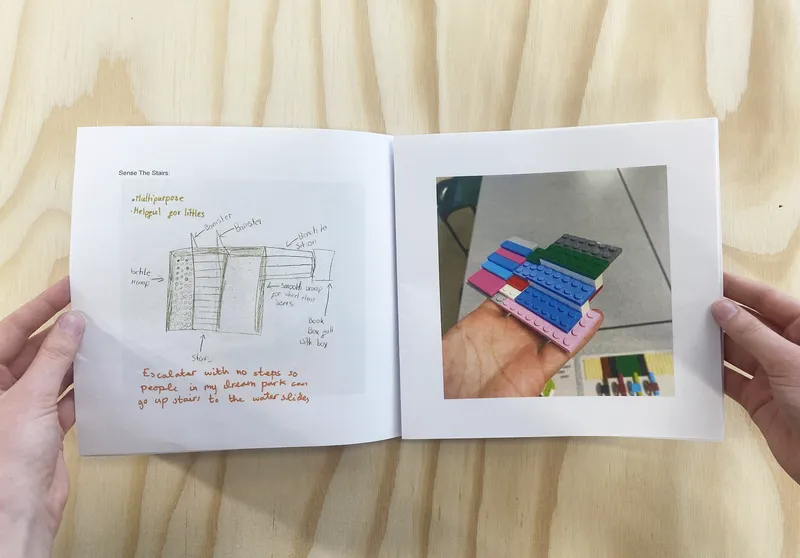 Sense The Stairs:
• Multipurpose
• Helpful for littles
Banister
Banister
Bench to
sit on
tactile
ramp
smooth ramp
for wheel chair
users
Book
Box
with box
Stairs
Escalator with no steps so
people in my dream park can
go up stairs to the water slides